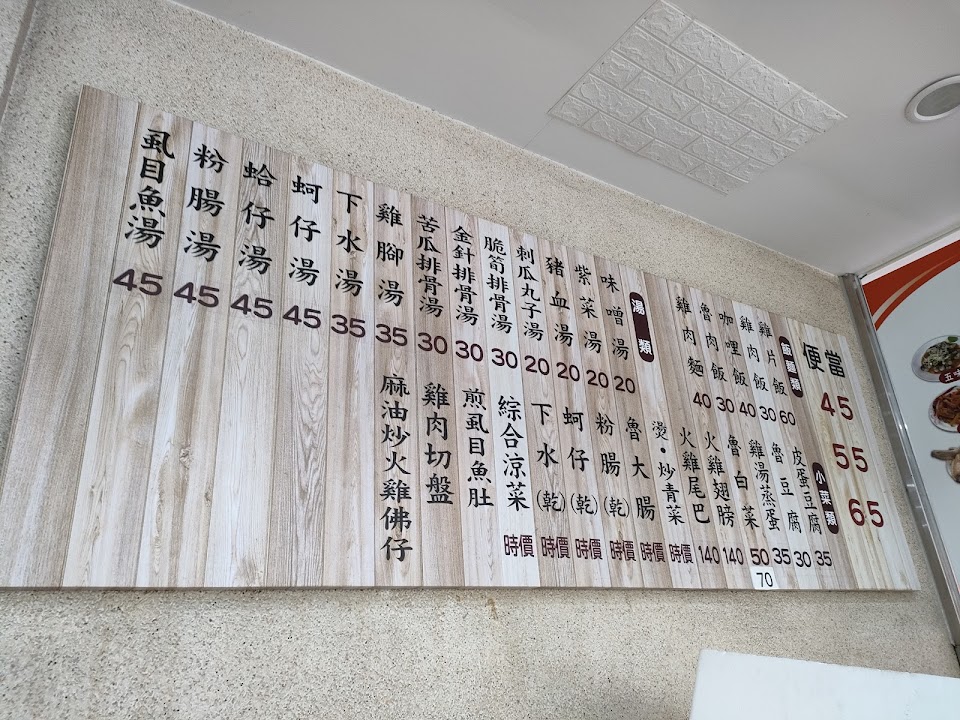 便當
45
55
65
飯麵類
雞片飯 60
雞肉飯 30
咖哩飯 40
魯肉飯 30
雞肉麵 40
湯類
味噌湯 20
紫菜湯 20
豬血湯 20
刺瓜丸子湯 20
脆筍排骨湯 30
金針排骨湯 30
苦瓜排骨湯 30
雞腳湯 35
下水湯 35
蚵仔湯 45
蛤仔湯 45
粉腸湯 45
虱目魚湯 45
小菜類
皮蛋豆腐 35
魯豆腐 30
雞湯蒸蛋 35
魯白菜 50
70
火雞翅膀 140
火雞尾巴 140
燙・炒青菜 時價
魯大腸 時價
粉腸(乾) 時價
蚵仔(乾) 時價
下水(乾) 時價
綜合涼菜 時價
煎虱目魚肚
雞肉切盤
麻油炒火雞佛仔